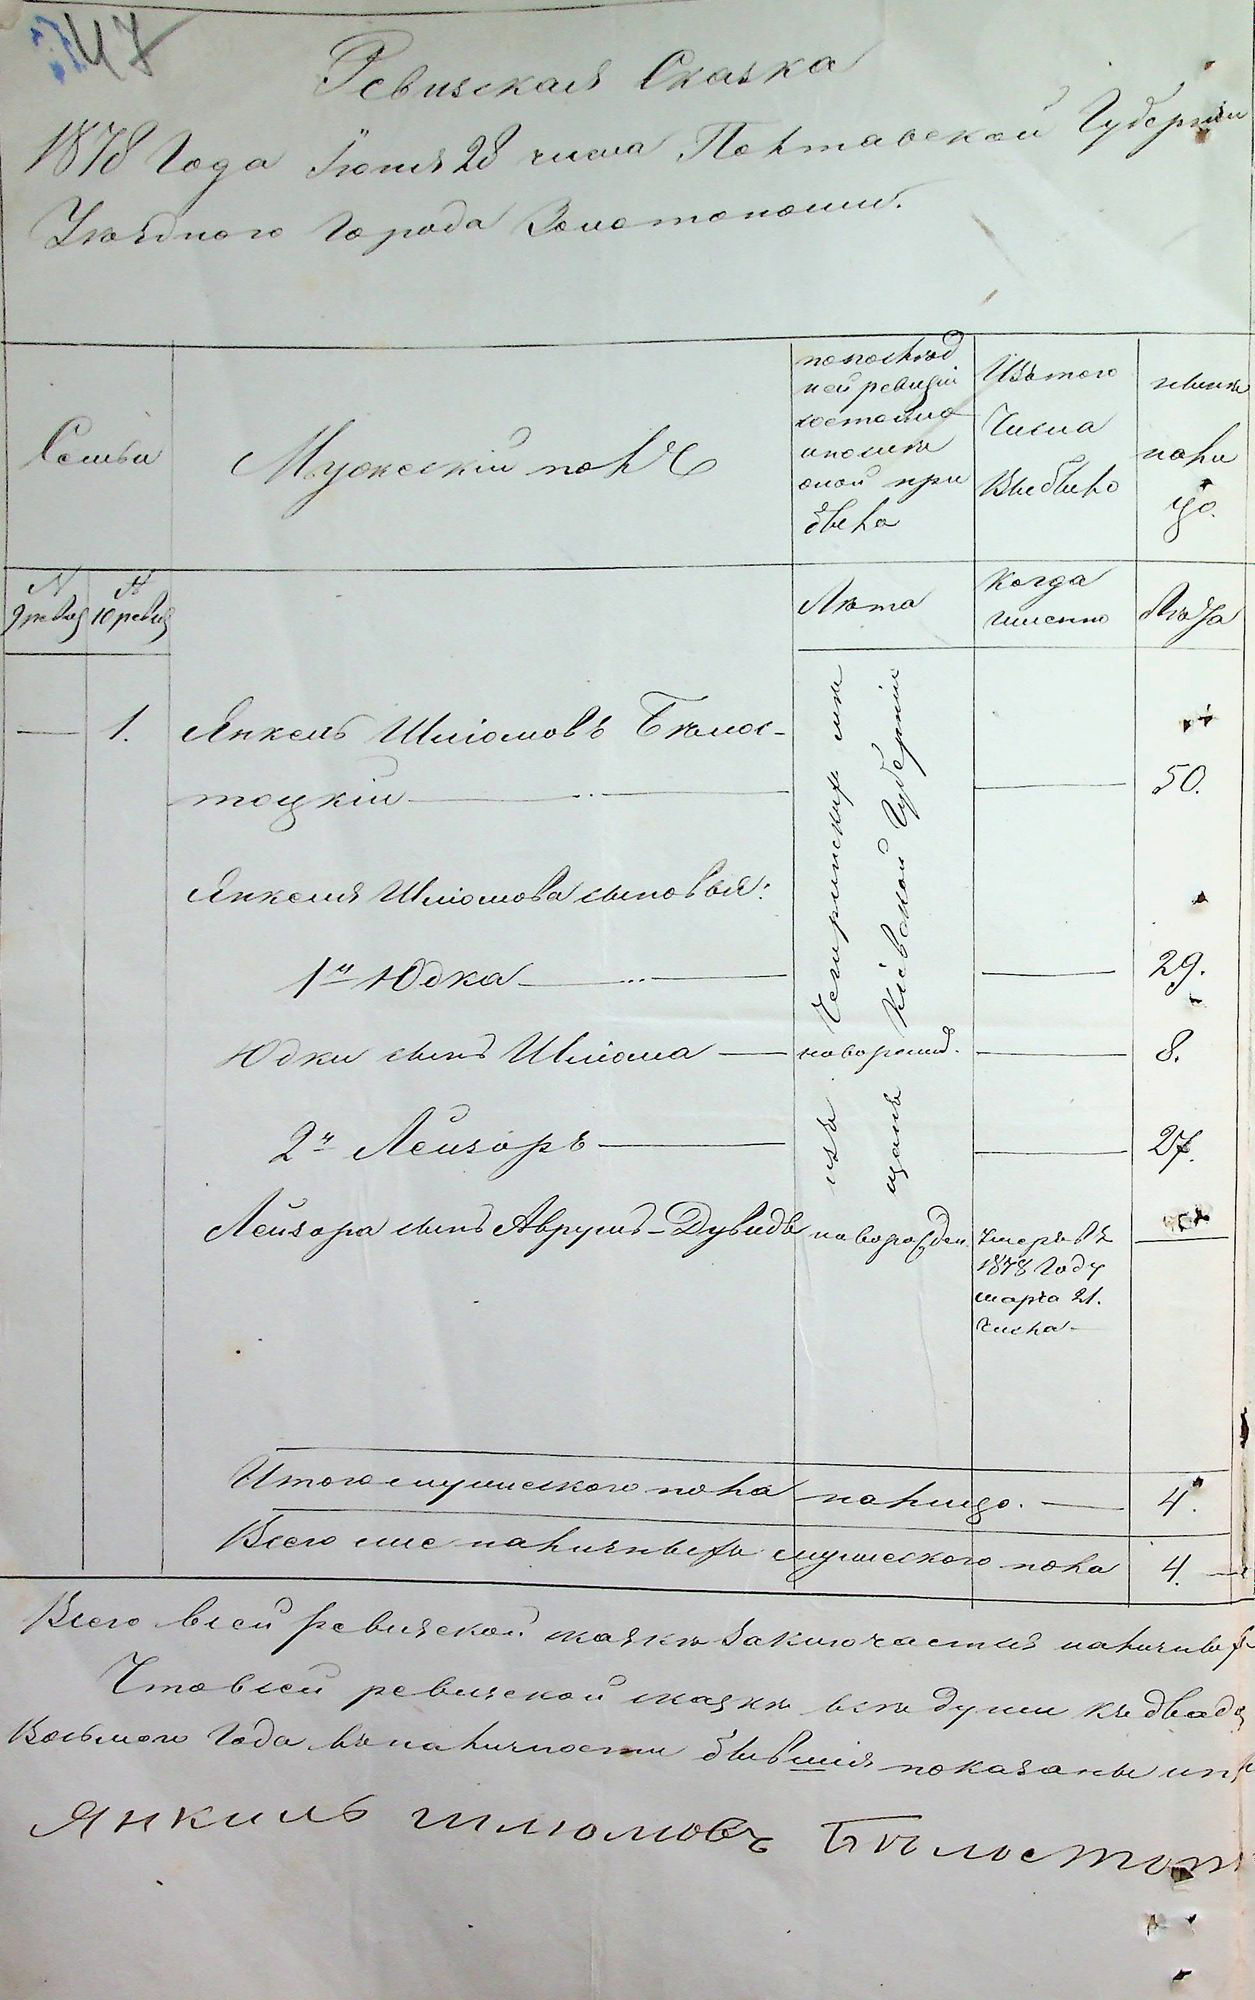 47
Ревизская Сказка
1878 Года Іюня 28 числа Полтавской Губерніи
Уѣзднаго Города Золотоноши.
Семьи
Мужескій полъ
по послѣд
ней ревизіи
состояло
и послѣ
оной при
было
Изъ того
Числа
Выбыло
нынѣ
на ли
цо.
N
9 ревиз
N
10 ревиз
Лѣта
Когда
именно
Лѣта
— 1. Янкель Шліомовъ Бѣлос-
тоцкій — 50.
изъ Чегиринскихъ мѣ
щанъ Кіевской Губерніи
Янкеля Шліомова сыновья:
1й Юдка — 29.
Юдки сынъ Шліома — новорожд. — 8.
2й Лейзоръ — 27.
Лейзора сынъ Аврумъ-Дувидъ новорожден. Умеръ въ
1878 Году
марта 21.
числа —
Итого мужескаго пола налицо. — 4.
Всего же наличныхъ мужескаго пола 4. —
Всего въ сей ревизской сказкѣ заключается наличных
Что въ сей ревизской сказкѣ всѣ души къ двадц
Восьмого Года въ наличности бывшія показаны и пр
Янкиль Шлюмовъ Бѣлостоц